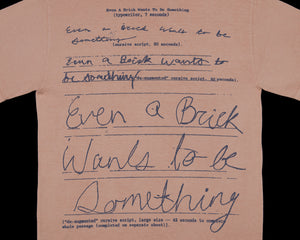 Even A Brick Wants To Be Something
(typewriter, 7 seconds)
Even a Brick wants to be
something
(cursive script, 20 seconds)
Even a Brick wants to
be something
"de-augmented" cursive script, seconds).
Even a Brick
Wants to be
Something
("de-augmented" cursive script, large size — 43 seconds to complete
whole passage (completed on separate sheet).